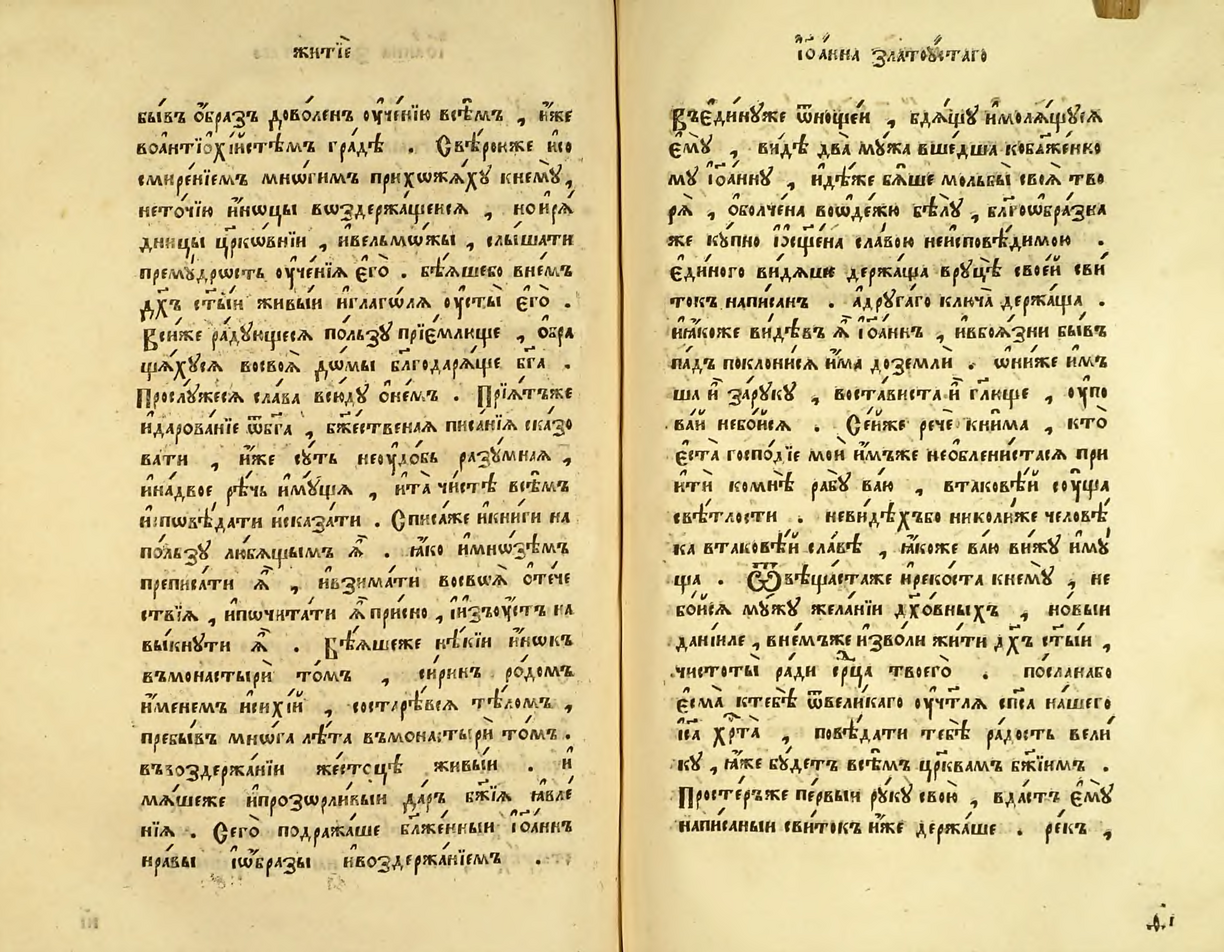 житїе
бы́въ ѻ҆́бразъ дово́ленъ ᲂу҆че́нїю всѣ́мъ , и҆́же
воантїохі́йстѣмъ гра́дѣ . Свѣ́роюже исо
смире́нїемъ мнѡ́гимъ прихѡжа́хꙋ кнемꙋ̀,
нето́чїю и҆́нѡцы вѡздержа́щеися , ноирѧ́
дницы цр҃кѡ́внїи , ивельмѡ́жы , слы́шати
премꙋ́дрѡсть ᲂу҆че́нїѧ є҆гѡ̀ . бѣ́ѧшебо вне́мъ
дх҃ъ ст҃ы́и живы́и иглаго́лѧ ᲂу҆сты̀ є҆гѡ̀ .
Вси́же ра́дꙋющесѧ по́льзꙋ прїе́млюще , ѻ҆бра
ща́хꙋсѧ восвоѧ̀ до́мы бл҃годарѧ́ще бг҃а .
Прослꙋ́жесѧ сла́ва всю́дꙋ ѻ҆не́мъ . Прїѧ́тъже
идарова́нїе ѿбг҃а , бж҃е́ственаѧ писа́нїѧ сказо
вати , и҆́же сꙋ́ть неᲂудо́бь разꙋ́мнаѧ ,
инадвое рѣ́чь имꙋ́щѧ , ита̀ чи́стѣ всѣ́мъ
исповѣ́дати исказа́ти . Списа́же икни́ги на
по́льзꙋ лю́бѧщымъ ѧ҆̀ . ꙗ҆́ко имнѡ́зѣмъ
преписа́ти ѧ҆̀ , ивзима́ти восвоѧ̀ ѻ҆те́че
ствїѧ , ипочита́ти ѧ҆̀ при́сно , иизъᲂу҆́стъ на
вы́кнꙋти ѧ҆̀ . Бѣ́ѧшеже нѣ́кїи и҆́нокъ
въмонастырѝ то́мъ , си́ринъ ро́домъ
и҆́менемъ исихі́й , состарѣ́всѧ тѣ́ломъ ,
пребы́въ мнѡ́га лѣ́та въмонастырѝ то́мъ .
въвоздержа́нїи же́стоцѣ живы́и . и҆
мѧ́шеже ипрозѡрли́выи да́ръ бж҃їѧ ꙗ҆вле́
нїѧ . Сегѡ̀ подража́ше бл҃же́нныи і҆ѡа́ннъ
нра́вы иѻ҆́бразы ивоздержа́нїемъ .
і҆ѡа́нна златоꙋ́стаго
Въєди́нꙋже ѿноще́и , бдѧ́щꙋ имолѧ́щꙋсѧ
є҆мꙋ̀ , ви́дѣ два̀ мꙋ́жа вше́дша кобл҃же́нно
мꙋ і҆ѡа́ннꙋ , идѣ́же бѧ́ше мольбы̀ своѧ̀ тво
рѧ̀ , ѻ҆болче́на воѻ҆де́жю бѣ́лꙋ , бл҃гоѻ҆бра́зна
же кꙋ́пно иѻ҆сщ҃е́на сла́вою неисповѣ́димою .
є҆ди́ного ви́дѧше держа́ща врꙋцѣ̀ свое́й сви
токъ напи́санъ . адрꙋга́го ключа̀ держа́ща .
иꙗ҆́коже ви́дѣвъ ѧ҆̀ і҆ѡа́ннъ , ивбоѧ́зни бы́въ
па́дъ поклони́сѧ и҆́ма доземлѝ . ѡ҆ни́же и҆́мъ
ша и҆̀ за́рꙋкꙋ , воста́виста и҆̀ гл҃юще , ᲂу҆по
ва́й небо́йсѧ . Се́йже речѐ кни́ма , ктѡ̀
є҆ста̀ господі́е мои̇̀ и҆́мъже необлени́стасѧ при
ити̇̀ комнѣ̀ рабꙋ̀ ва́ю , втаковѣ́й сᲂу́ща
свѣ́тлости . неви́дѣхъбо николи́же человѣ́
ка втаковѣ́й сла́вѣ , ꙗ҆́коже ва́ю ви́жꙋ имꙋ́
ща . Ѿвѣща́стаже ирекоста кнемꙋ̀ , не
бо́йсѧ мꙋ́жꙋ жела́нїи дх҃о́вныхъ , но́выи
данїи́ле , вне́мъже изво́ли жи́ти дх҃ъ ст҃ы́и ,
чистоты̀ ра́ди ср҃ца твоегѡ̀ . по́сланабо
є҆сма̀ ктебѣ̀ ѿвели́каго ᲂу҆чт҃лѧ сп҃са на́шего
і҆с҃а хр҃та̀ , повѣ́дати тебѣ̀ ра́дость вели
кꙋ , ꙗ҆́же бꙋ́детъ всѣ́мъ цр҃квамъ бж҃їимъ .
Просте́ръже пе́рвыи рꙋ́кꙋ свою̀ , вда́стъ є҆мꙋ̀
напи́саныи сви́токъ и҆́же держа́ше . ре́къ ,